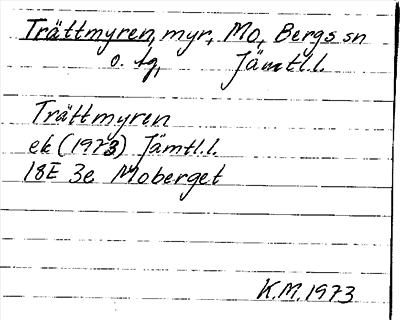 Trättmyren, myr, Mo, Bergs sn
o. tg, Jämtl.l.
Trättmyren
ek (1973) Jämtl.l.
18E 3e Moberget
K.M. 1973